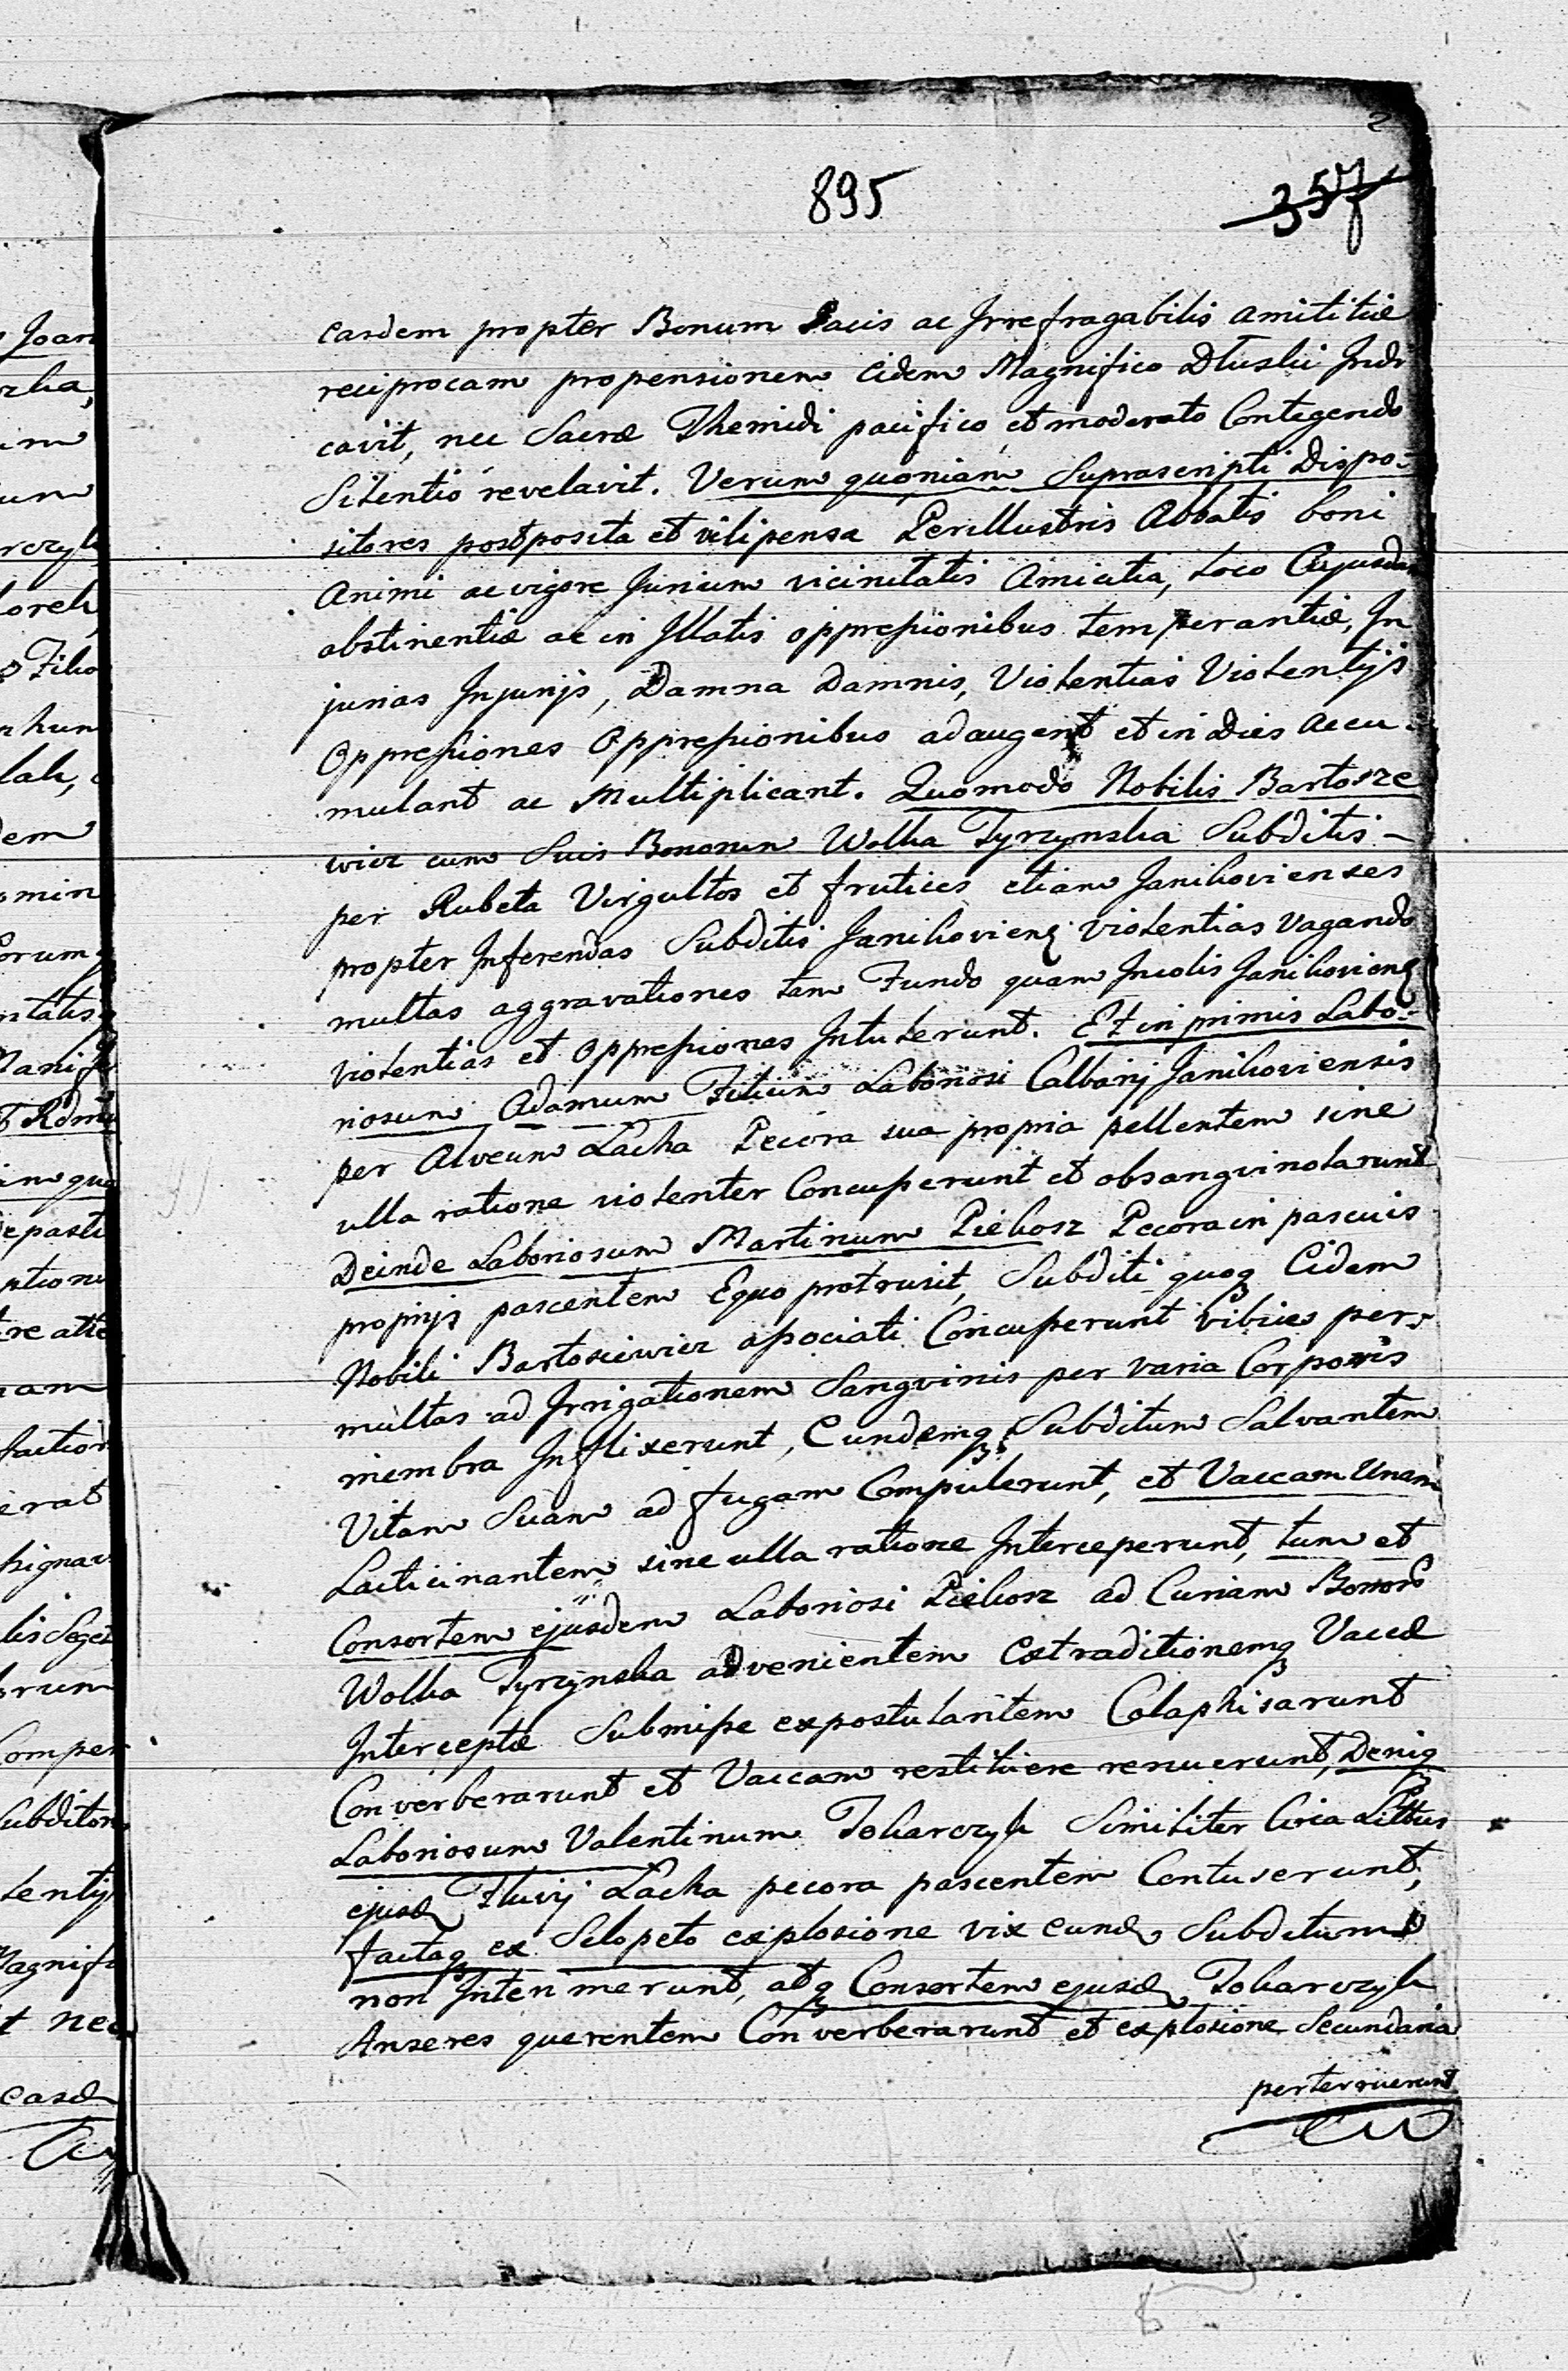 895
357
easdem propter Bonum Pacis ac Irrefragabilis amititiæ
reciprocam propensionem eidem Magnifico Dłuski Indi
cavit, nec Sacræ Themidi pacifico et moderato Contegendo
Silentio revelavit. Verum quoniam Suprascripti Dispo-
sitores postposita et vilipensa Perillustris Abbatis boni
Animi ac vigore Jurium vicinitatis Amicitia, loco Cujusdam
abstinentiæ ac in Illatis oppressionibus temperantiæ, In
jurias Injurijs, Damna Damnis, Violentias Violentijs
Oppressiones Oppressionibus adaugent et in dies accu-
mulant ac Multiplicant. Quomodo Nobilis Bartosze
wicz cum Suis Bonorum Wolka Tyrzynska Subditis -
per Rubeta Virgultos et frutices etiam Janikovienses
propter Inferendas Subditis Janikovien violentias vagando
multas aggravationes tam Fundo quam Incolis Janikovien
violentias et Oppressiones Intulerunt. Et in primis Labo-
riosum Adamum Filium Laboriosi Calbarij Janikoviensis
per Alveum Lacha Pecora sua propria pellentem sine
ulla ratione violenter Concusserunt et obsangvinolarunt
Deinde Laboriosum Martinum Piekosz Pecora in pascuis
proprijs pascentem Equo protrusit, Subditi quoq Eidem
Nobili Bartosiewicz associati Concusserunt vibices per
multas ad Irrigationem Sangvinis per varia Corporis
membra Inflixerunt, Eundemq Subditum Salvantem
Vitam Suam ad fugam Compulerunt, et Vaccam Unam
Lacticinantem sine ulla ratione Interceperunt, tum et
Consortem ejusdem Laboriosi Piekosz ad Curiam Bonor
Wolka Tyrzynska advenientem Extraditionemq Vaccæ
Interceptæ Submisse expostulantem Colaphisarunt
Converberarunt et Vaccam restituere renuerunt, Deniq
Laboriosum Valentinum Tokarczyk Similiter Circa Littus
ejusd Fluvij Lacha pecora pascentem Contuserunt,
factaq ex Sclopeto explosione vix eund Subditum
non Interimerunt, atq Consortem ejusd Tokarczyk
Anseres querentem Converberarunt et explosione Secundaria
perterruerunt